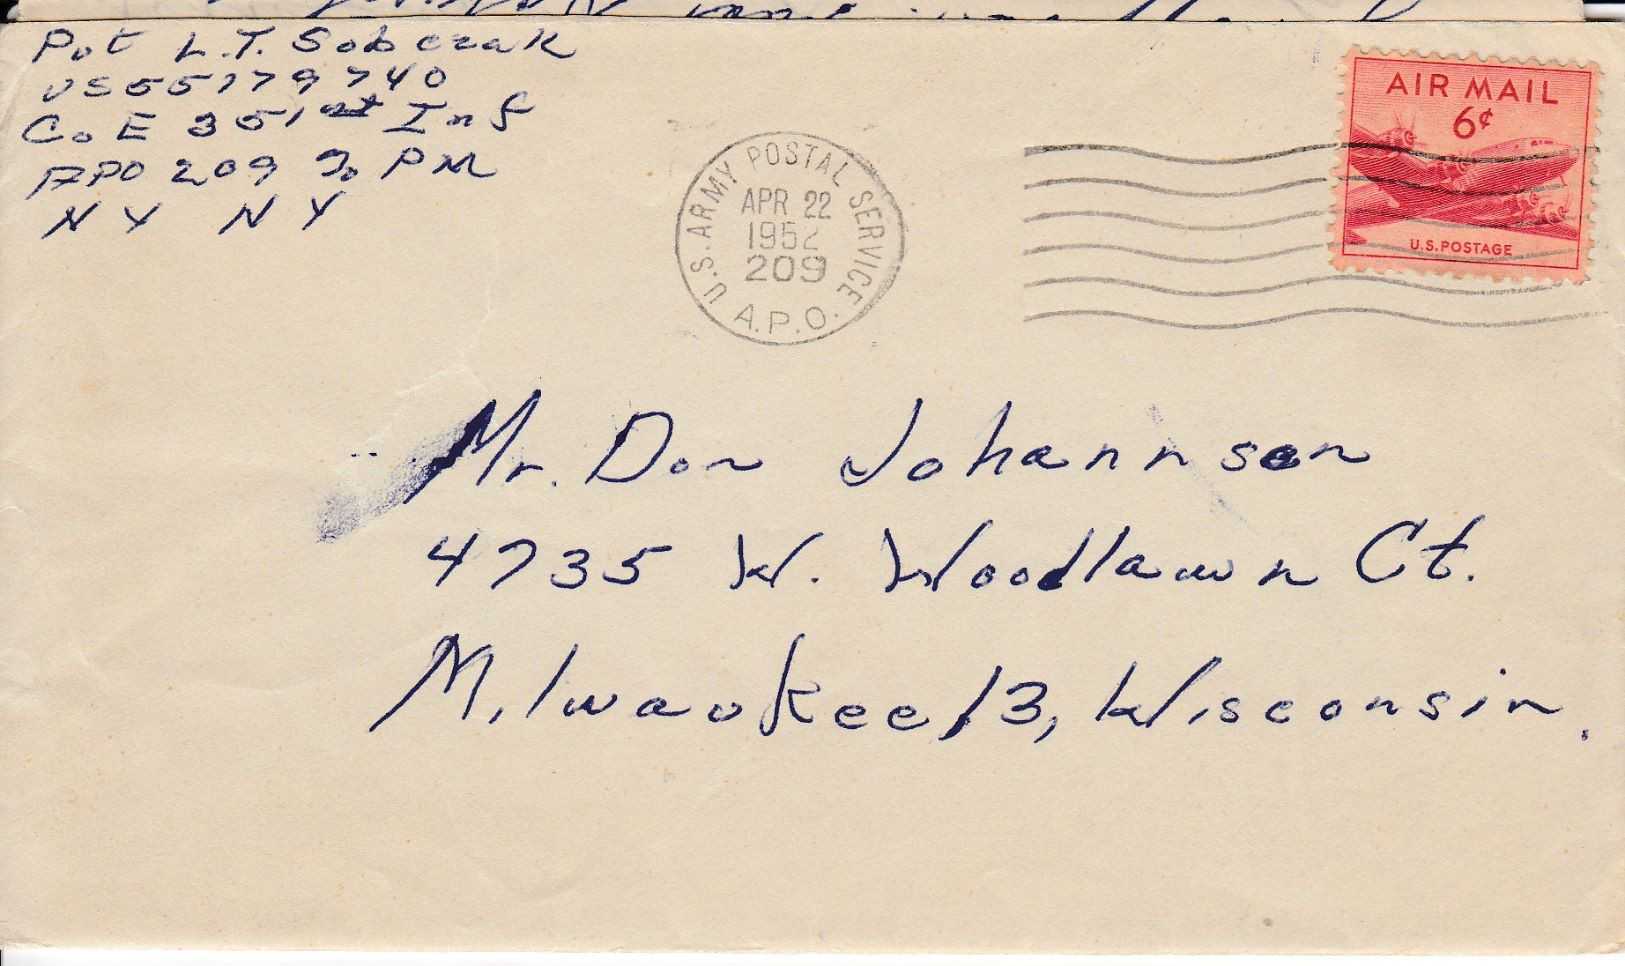 Pvt L.T. Sobczak
US55179740
Co E 351st Inf
APO 209 % PM
NY NY
U.S. ARMY POSTAL SERVICE
APR 22
1952
209
A.P.O.
AIR MAIL
6¢
U.S. POSTAGE
Mr. Don Johannsen
4735 W. Woodlawn Ct.
Milwaukee 13, Wisconsin.